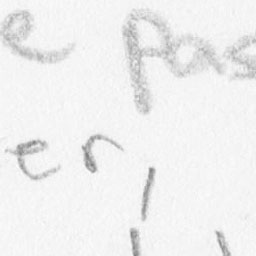 e pas
er,